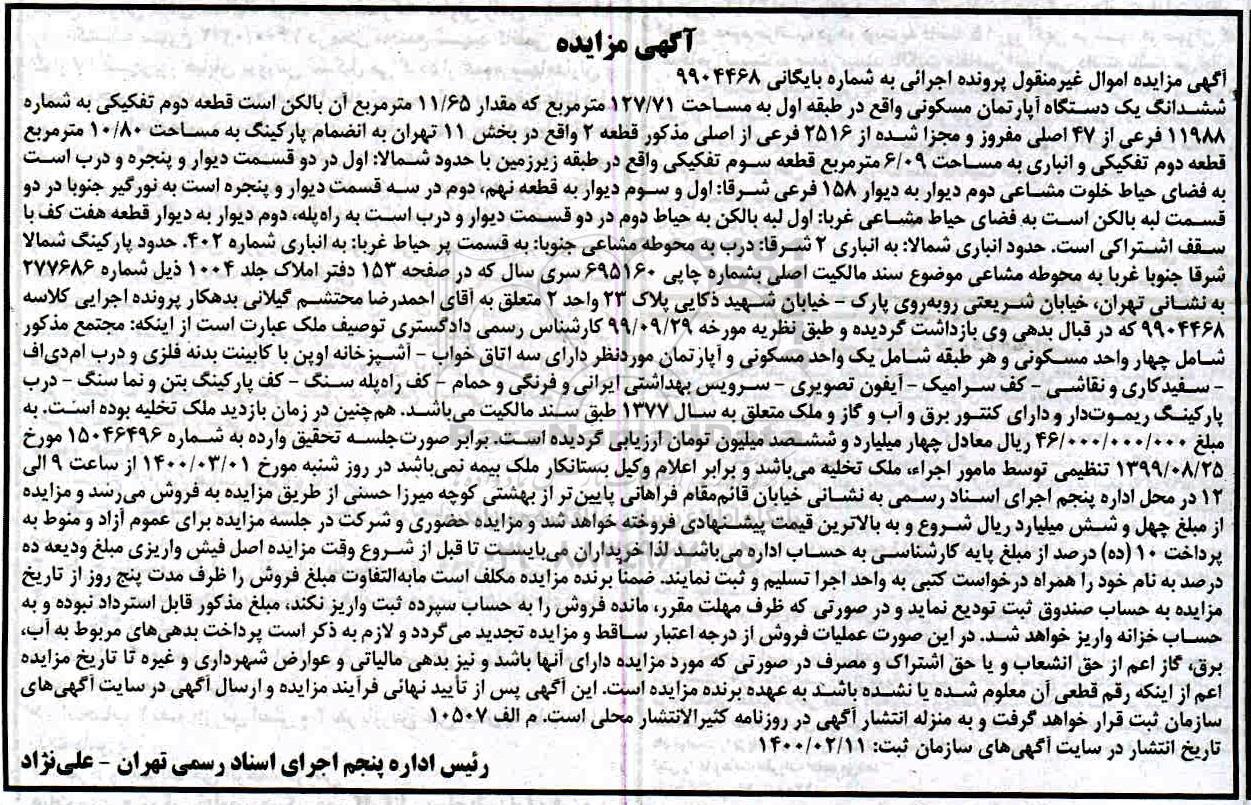 آگهی مزایده
آگهی مزایده اموال غیرمنقول پرونده اجرائی به شماره بایگانی ۹۹۰۴۴۶۸
ششدانگ یک دستگاه آپارتمان مسکونی واقع در طبقه اول به مساحت ۱۲۷/۷۱ مترمربع که مقدار ۱۱/۶۵ مترمربع آن بالکن است قطعه دوم تفکیکی به شماره
۱۱۹۸۸ فرعی از ۴۷ اصلی مفروز و مجزا شده از ۲۵۱۶ فرعی از اصلی مذکور قطعه ۲ واقع در بخش ۱۱ تهران به انضمام پارکینگ به مساحت ۱۰/۸۰ مترمربع
قطعه دوم تفکیکی و انباری به مساحت ۶/۰۹ مترمربع قطعه سوم تفکیکی واقع در طبقه زیرزمین با حدود شمالا: اول در دو قسمت دیوار و پنجره و درب است
به فضای حیاط خلوت مشاعی دوم دیوار به دیوار ۱۵۸ فرعی شرقا: اول و سوم دیوار به قطعه نهم، دوم در سه قسمت دیوار و پنجره است به نورگیر جنوبا در دو
قسمت لبه بالکن است به فضای حیاط مشاعی غربا: اول لبه بالکن به حیاط دوم در دو قسمت دیوار و درب است به راه‌پله، دوم دیوار به دیوار قطعه هفت کف با
سقف اشتراکی است. حدود انباری شمالا: به انباری ۲ شرقا: درب به محوطه مشاعی جنوبا: به قسمت پر حیاط غربا: به انباری شماره ۴۰۲. حدود پارکینگ شمالا
شرقا جنوبا غربا به محوطه مشاعی موضوع سند مالکیت اصلی بشماره چاپی ۶۹۵۱۶۰ سری سال که در صفحه ۱۵۳ دفتر املاک جلد ۱۰۰۴ ذیل شماره ۲۷۷۶۸۶
به نشانی تهران، خیابان شریعتی روبه‌روی پارک - خیابان شهید ذکایی پلاک ۲۳ واحد ۲ متعلق به آقای احمدرضا محتشم گیلانی بدهکار پرونده اجرایی کلاسه
۹۹۰۴۴۶۸ که در قبال بدهی وی بازداشت گردیده و طبق نظریه مورخه ۹۹/۰۹/۲۹ کارشناس رسمی دادگستری توصیف ملک عبارت است از اینکه: مجتمع مذکور
شامل چهار واحد مسکونی و هر طبقه شامل یک واحد مسکونی و آپارتمان موردنظر دارای سه اتاق خواب - آشپزخانه اوپن با کابینت بدنه فلزی و درب ام‌دی‌اف
- سفیدکاری و نقاشی - کف سرامیک - آیفون تصویری - سرویس بهداشتی ایرانی و فرنگی و حمام - کف راه‌پله سنگ - کف پارکینگ بتن و نما سنگ - درب
پارکینگ ریموت‌دار و دارای کنتور برق و آب و گاز و ملک متعلق به سال ۱۳۷۷ طبق سند مالکیت می‌باشد. هم‌چنین در زمان بازدید ملک تخلیه بوده است. به
مبلغ ۴۶/۰۰۰/۰۰۰/۰۰۰ ریال معادل چهار میلیارد و ششصد میلیون تومان ارزیابی گردیده است. برابر صورت‌جلسه تحقیق وارده به شماره ۱۵۰۴۶۴۹۶ مورخ
۱۳۹۹/۰۸/۲۵ تنظیمی توسط مامور اجراء، ملک تخلیه می‌باشد و برابر اعلام وکیل بستانکار ملک بیمه نمی‌باشد در روز شنبه مورخ ۱۴۰۰/۰۳/۰۱ از ساعت ۹ الی
۱۲ در محل اداره پنجم اجرای اسناد رسمی به نشانی خیابان قائم‌مقام فراهانی پایین‌تر از بهشتی کوچه میرزا حسنی از طریق مزایده به فروش می‌رسد و مزایده
از مبلغ چهل و شش میلیارد ریال شروع و به بالاترین قیمت پیشنهادی فروخته خواهد شد و مزایده حضوری و شرکت در جلسه مزایده برای عموم آزاد و منوط به
پرداخت ۱۰ (ده) درصد از مبلغ پایه کارشناسی به حساب اداره می‌باشد لذا خریداران می‌بایست تا قبل از شروع وقت مزایده اصل فیش واریزی مبلغ ودیعه ده
درصد به نام خود را همراه درخواست کتبی به واحد اجرا تسلیم و ثبت نمایند. ضمنا برنده مزایده مکلف است مابه‌التفاوت مبلغ فروش را ظرف مدت پنج روز از تاریخ
مزایده به حساب صندوق ثبت تودیع نماید و در صورتی که ظرف مهلت مقرر، مانده فروش را به حساب سپرده ثبت واریز نکند، مبلغ مذکور قابل استرداد نبوده و به
حساب خزانه واریز خواهد شد. در این صورت عملیات فروش از درجه اعتبار ساقط و مزایده تجدید می‌گردد و لازم به ذکر است پرداخت بدهی‌های مربوط به آب،
برق، گاز اعم از حق انشعاب و یا حق اشتراک و مصرف در صورتی که مورد مزایده دارای آنها باشد و نیز بدهی مالیاتی و عوارض شهرداری و غیره تا تاریخ مزایده
اعم از اینکه رقم قطعی آن معلوم شده یا نشده باشد به عهده برنده مزایده است. این آگهی پس از تأیید نهائی فرآیند مزایده و ارسال آگهی در سایت آگهی‌های
سازمان ثبت قرار خواهد گرفت و به منزله انتشار آگهی در روزنامه کثیرالانتشار محلی است. م الف ۱۰۵۰۷
تاریخ انتشار در سایت آگهی‌های سازمان ثبت: ۱۴۰۰/۰۲/۱۱
رئیس اداره پنجم اجرای اسناد رسمی تهران - علی‌نژاد